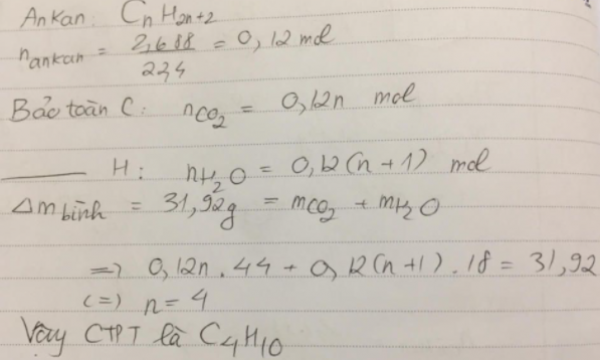 Ankan: CnH2n+2
nankan = 2,688 / 22,4 = 0,12 mol
Bảo toàn C: nCO2 = 0,12n mol
——— H: nH2O = 0,12(n+1) mol
Δm bình = 31,92g = mCO2 + mH2O
=> 0,12n.44 + 0,12(n+1).18 = 31,92
(=) n=4
Vậy CTPT là C4H10